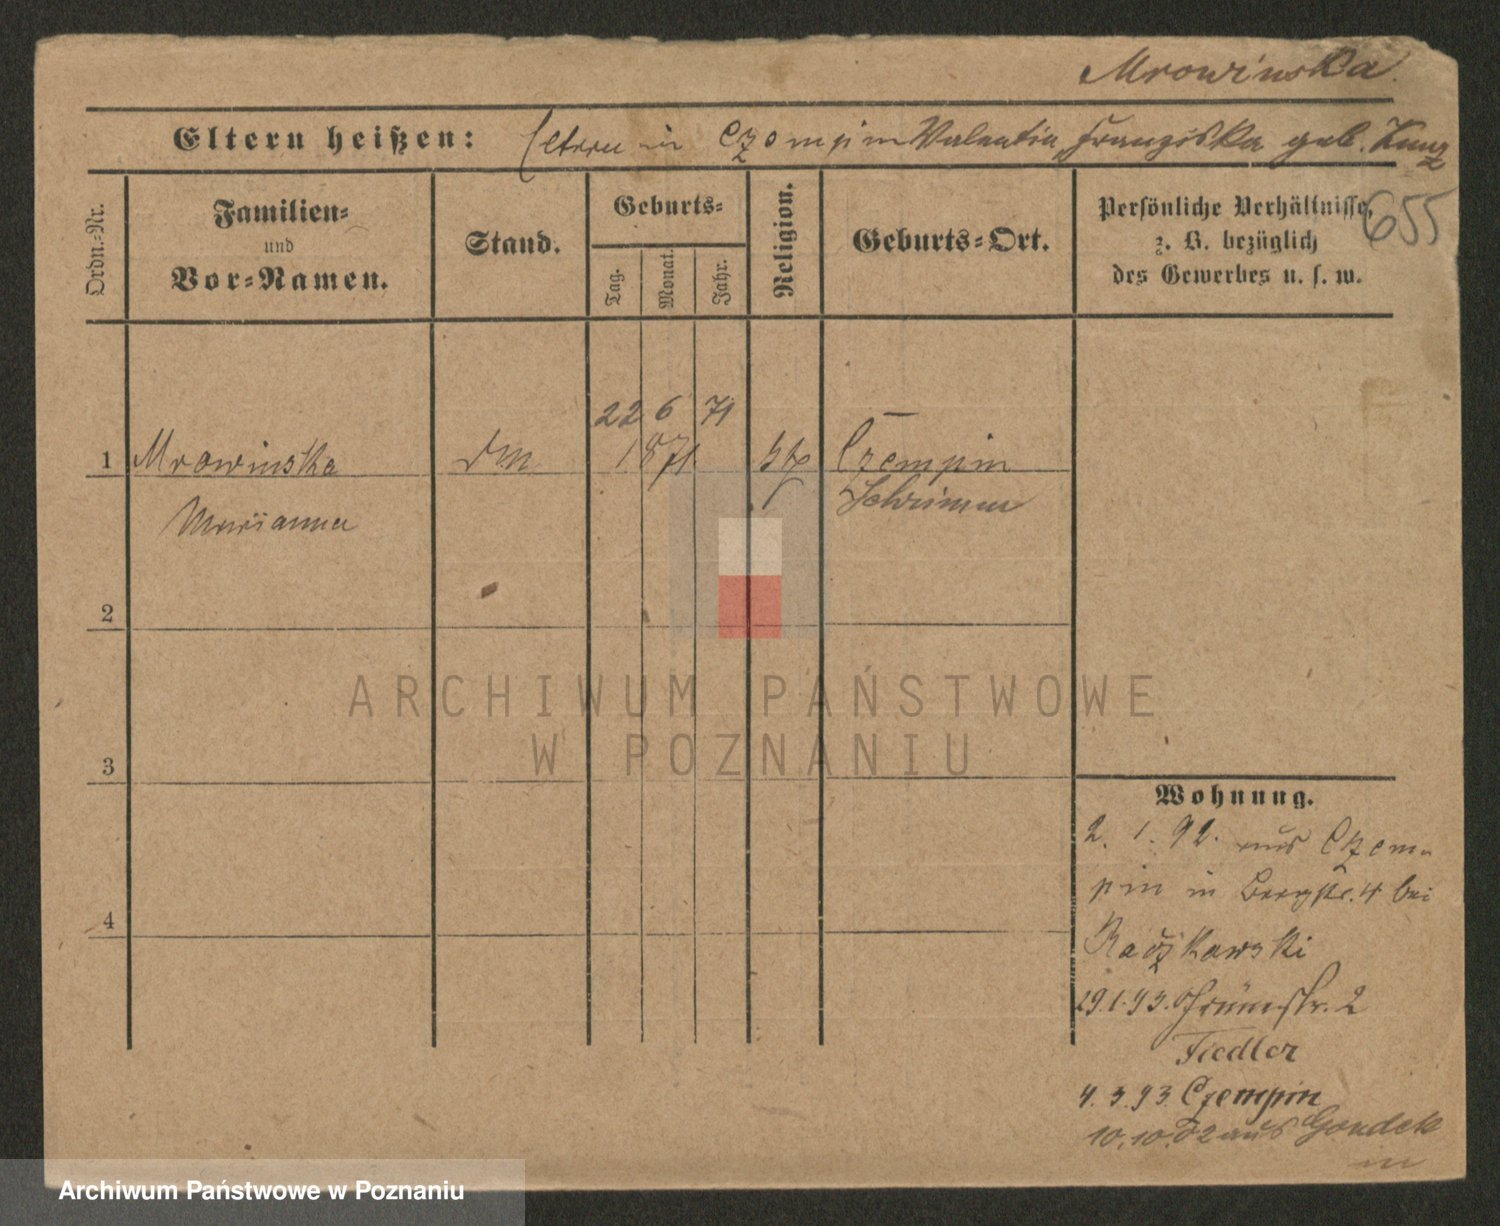 Mrowinska.
Eltern heißen: Eltern in Czempin Valentin, Franziska geb. Kunz
Ordn.-Nr.
Familien-
und
Vor-Namen.
Stand.
Geburts-
Tag.
Monat.
Jahr.
Religion.
Geburts-Ort.
Persönliche Verhältnisse,
z. B. bezüglich
des Gewerbes u. s. w.
655
22 6 71
1 Mrowinska DM 1871 kth Czempin
Marianna Schrimm
2
3
4
Wohnung.
2. 1. 92. aus Czem-
pin in Bergstr. 4 bei
Raczkowski
29.1.93. Grünstr. 2
Fiedler
4. 3. 93. Czempin
10.10.02 aus Gondek
in
ARCHIWUM PAŃSTWOWE
W POZNANIU
Archiwum Państwowe w Poznaniu